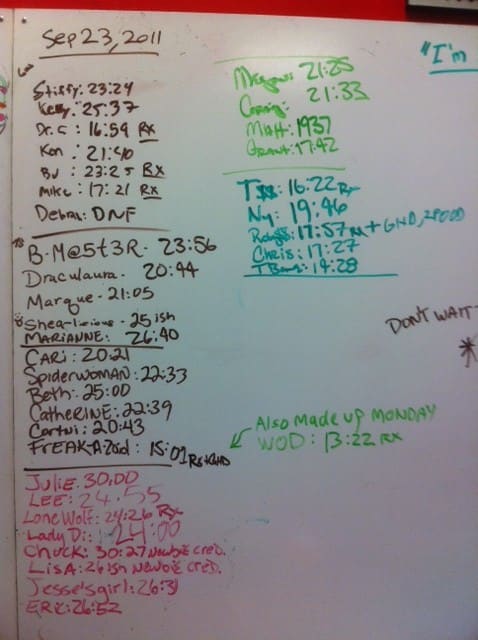 Sep 23, 2011
Stiffy: 23:24
Kelly: 25:37
Dr. C: 16:59 Rx
Ken: 21:40
BJ: 23:25 Rx
Mike: 17:21 Rx
Debra: DNF
B-M@5t3R- 23:56
Draculaura- 20:44
Marque- 21:05
Shea-licious- 25 ish
MARIANNE: 26:40
CARI: 20:21
SpiderWOMAN: 22:33
Beth: 25:00
CatheRINE: 22:39
Cortni: 20:43
FREAK-A-Zoid: 15:01 Rx+GHD
Julie 30:00
LEE: 24:55
Lone Wolf: 24:26 Rx
Lady Di: 24:00
Chuck: 30:27 Newbie cred.
LisA: 26ish Newbie cred.
Jesse'sgirl: 26:31
ERic: 26:52
21:25
21:33
Matt: 1937
Grant: 17:42
16:22 Rx
Ny: 19:46
17:57 Rx + GHD, 2POOD
Chris: 17:27
14:28
"I'm
DONT WAIT
Also Made up MONDAY
WOD: 13:22 RX